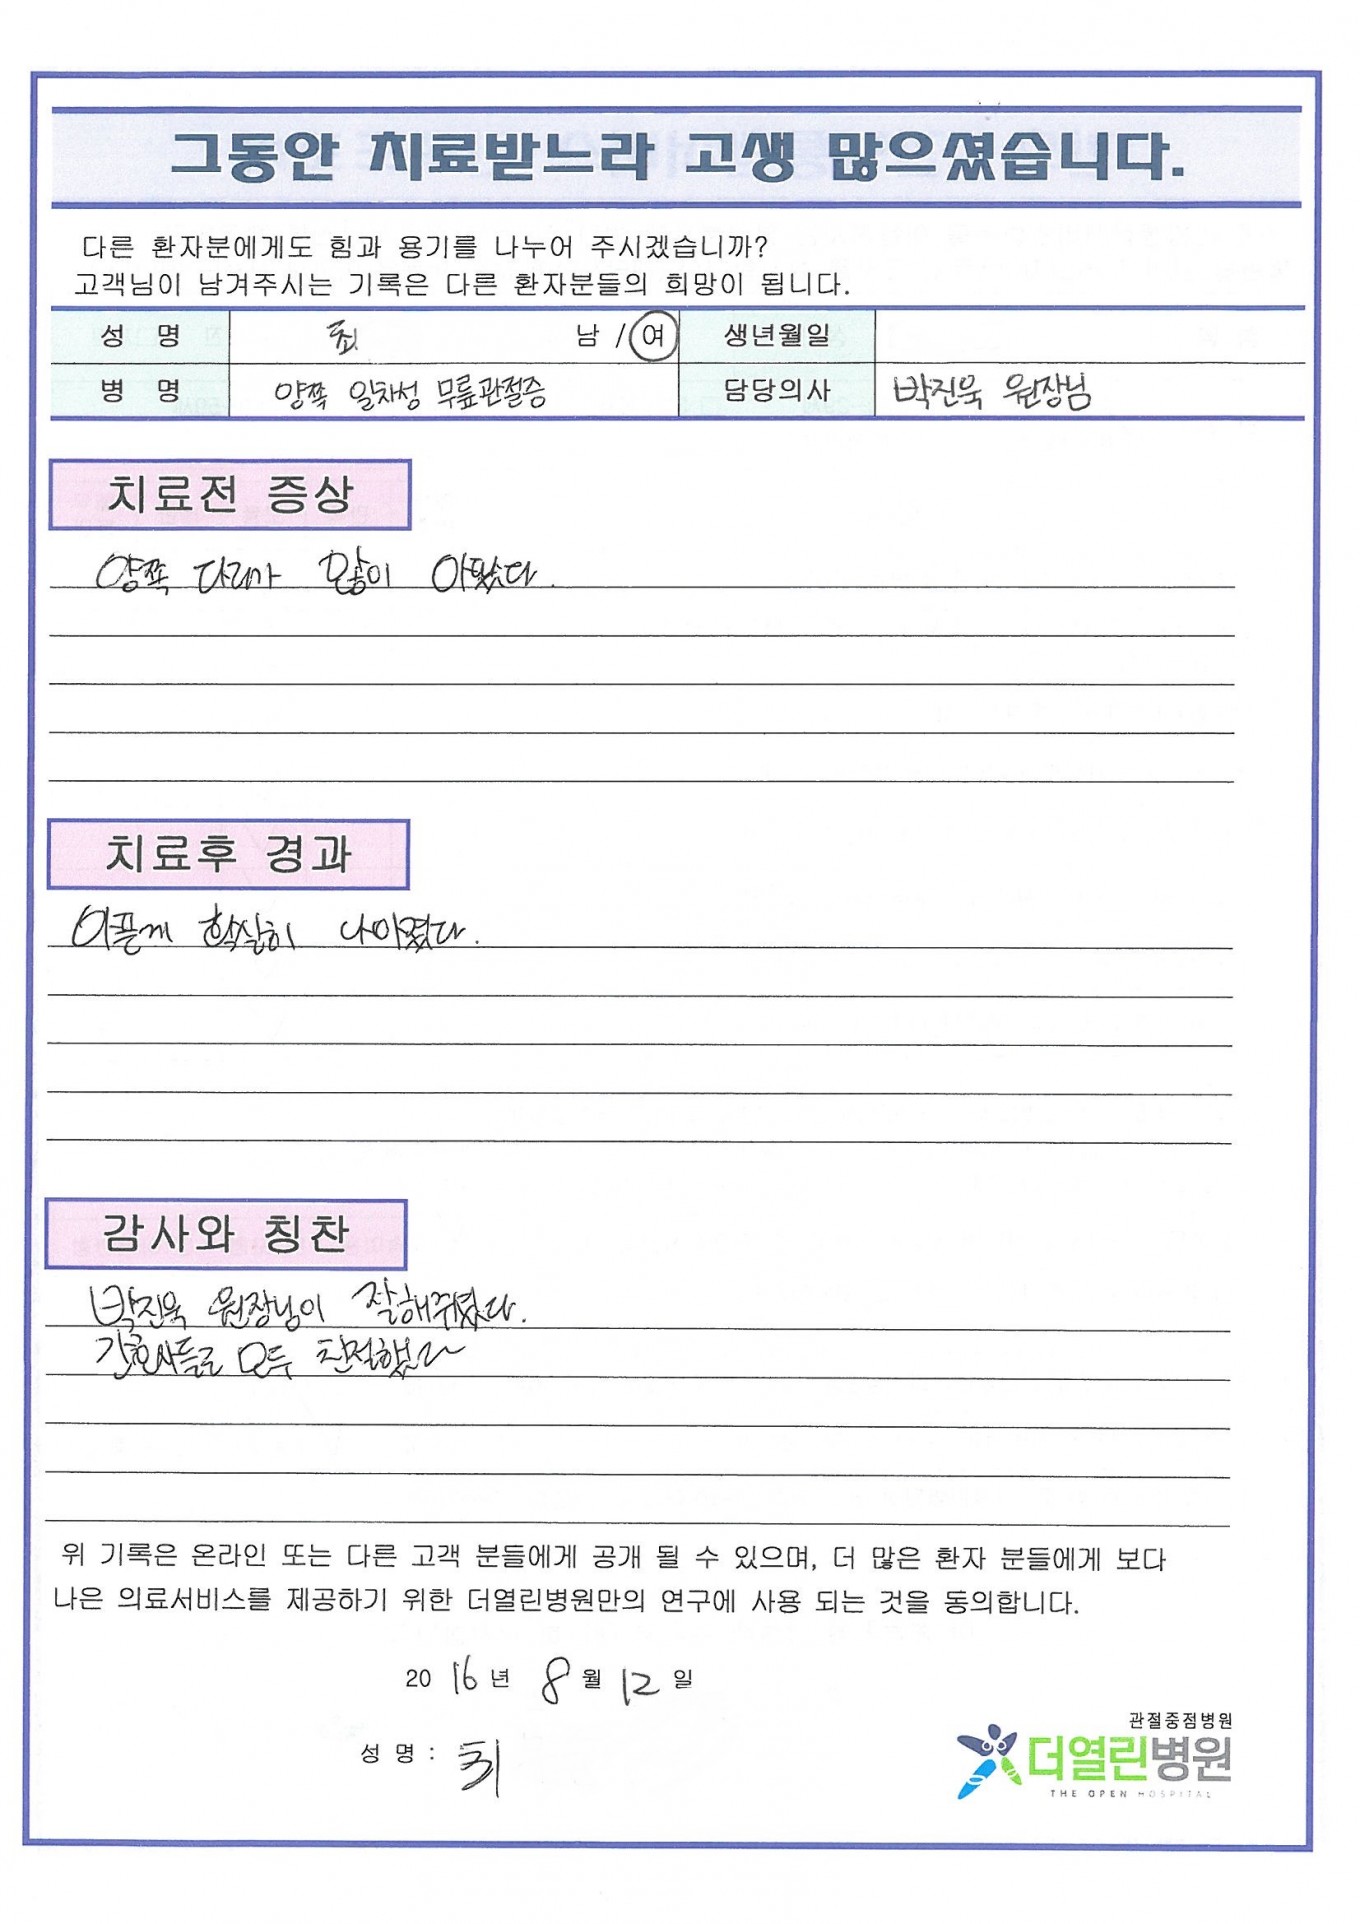 그동안 치료받느라 고생 많으셨습니다.
다른 환자분에게도 힘과 용기를 나누어 주시겠습니까?
고객님이 남겨주시는 기록은 다른 환자분들의 희망이 됩니다.
성 명 최 남 / 여 생년월일
병 명 양쪽 일차성 무릎관절증 담당의사 박진욱 원장님
치료전 증상
양쪽 다리가 많이 아팠다.
치료후 경과
아픈게 확실히 나아졌다.
감사와 칭찬
박진욱 원장님이 잘해주셨다.
간호사들도 모두 친절했다
위 기록은 온라인 또는 다른 고객 분들에게 공개 될 수 있으며, 더 많은 환자 분들에게 보다
나은 의료서비스를 제공하기 위한 더열린병원만의 연구에 사용 되는 것을 동의합니다.
2016년 8월 12일
성 명 : 최
관절중점병원
더열린병원
THE OPEN HOSPITAL